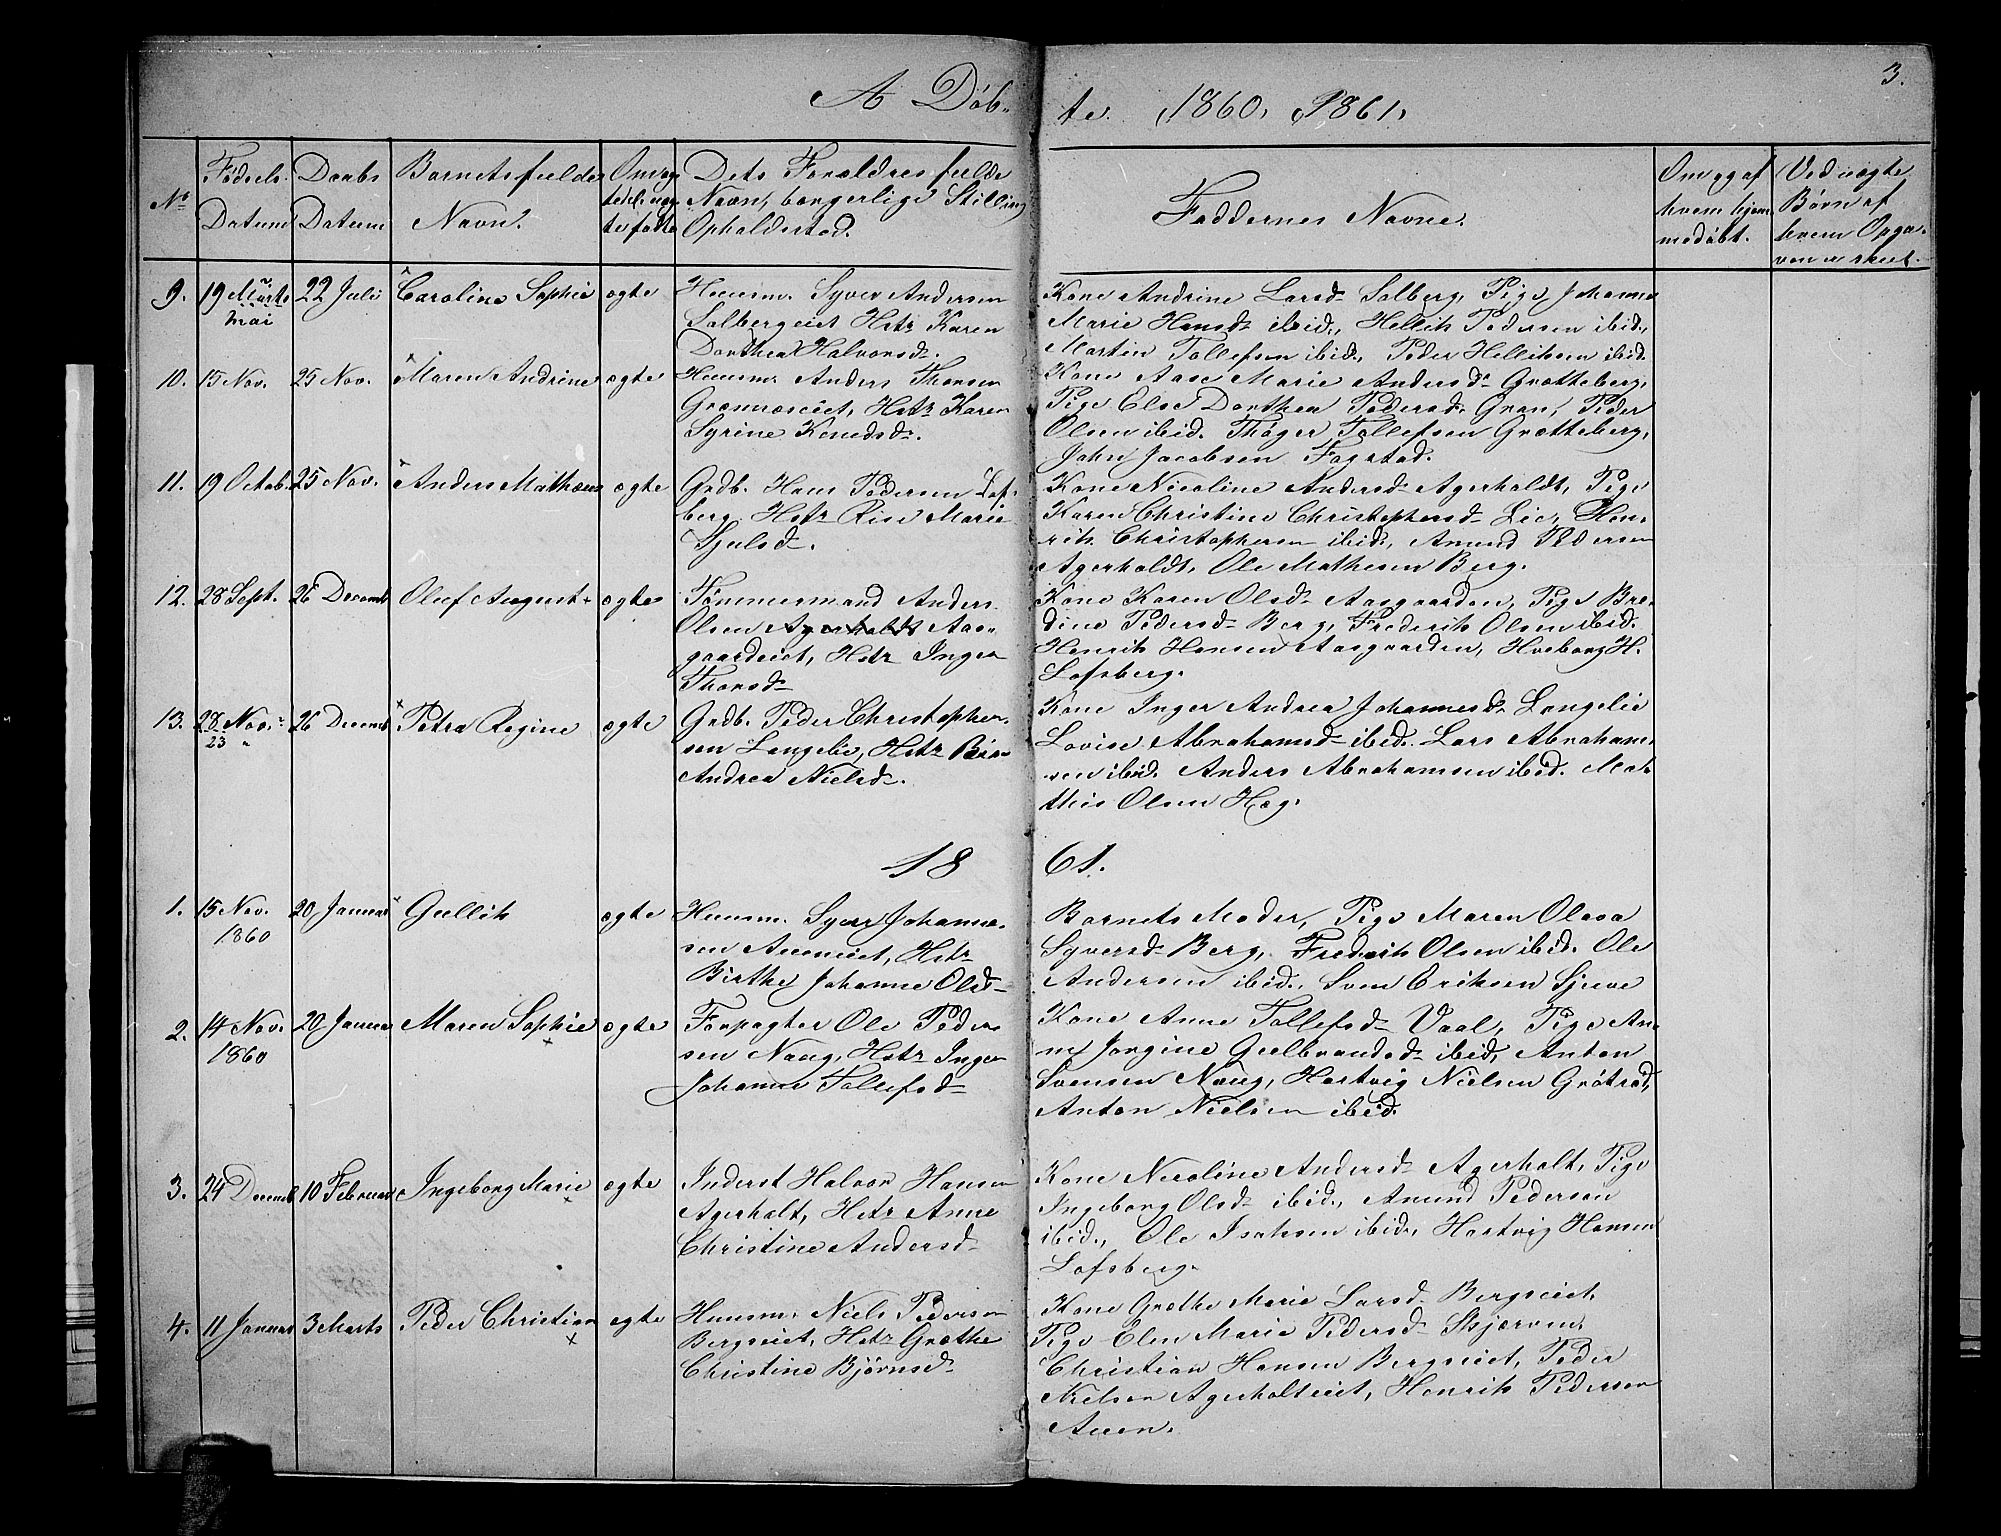 3.
A Döb- te. 1860, 1861,
No
Fødsels Datum
Daabs Datum
Barnets fulde Navn.
Om ægte el. uægte født
Dets Forældres fulde Navn, borgerlige Stilling Opholdsstad.
Faddernes Navne.
Om og af hvem hjemmedøbt.
Ved uægte Børn af hvem Opgaven er skeet.
9. 19 Marts Mai 22 Juli Caroline Sophie ægte
Huusm. Syver Andersen
Solbergeiet Hstr Karen
Dorthea Halvorsd.
Kone Andrine Larsd. Solberg, Pige Johanne
Marie Hansd. ibid., Hellik Pedersen ibid.,
Martin Tollefsen ibid., Peder Helliksen ibid.
10. 15 Nov. 25 Nov. Maren Andrine ægte
Huusm. Anders Thorsen
Hstr Karen
Syrine
Kone Aase Marie Andersd. Grætteberg,
Pige Else Dorthea Pedersd. Gran, Peder
Olsen ibid. Thøger Tollefsen Grætteberg,
John Jacobsen Fogstad.
11. 19 Octob. 25 Nov. Anders Mathæus ægte
Grdb. Hans Pedersen Lofsberg, Hstr Rise Marie
Sjulsd.
Kone Nicoline Andersd. Agerholdt, Pige
Karen Christine Christophersd. Lie, Henrik Christophersen ibid., Amund Pedersen
Agerholdt, Ole Mathesen Berg.
12. 28 Sept. 26 Decemb Oluf August ægte
Tømmermand Anders
Olsen Agerholdt Aasgaardeiet, Hstr Inger
Thorsd.
Kone Karen Olsd. Aasgaarden, Pige Bredine Pedersd. Berg, Frederik Olsen ibid.
Henrik Hansen Aasgaarden, Hveborg H.
Lofsberg.
13. 28 Nov. 23 " 26 Decemb Petra Regine ægte
Grdb. Peder Christophersen Langelie, Hstr
Andrea Nielsd.
Kone Inger Andrea Johannesd. Langelie
Lovise Abrahamsd. ibid. Lars Abrahamsen ibid. Anders Abrahamsen ibid. Mathis Olsen Hæg.
18 61.
1. 15 Nov. 1860 20 Januar Gullik ægte
Huusm. Syver Johannesen Aueneiet, Hstr
Birthe Johanne Olsd.
Barnets Moder, Pige Maren Olava
Syversd. Berg, Fredrik Olsen ibid. Ole
Andersen ibid., Sven Eriksen Sjueve
2. 14 Nov. 1860 20 Januar Maren Sophie ægte
Forpagter Ole Pedersen Naug, Hstr Inger
Johanne Tollefsd.
Kone Anne Tollefsd. Vaal, Pige Anne Jørgine Gulbrandsd. ibid, Anton
Svensen Naug, Hartvig Nielsen Grötrød,
Anton Nielsen ibid.
3. 24 Decemb 10 Februar Ingeborg Marie ægte
Inderst Halvor Hansen
Agerholt, Hstr Anne
Christine Andersd.
Kone Nicoline Andersd. Agerholt, Pige
Ingeborg Olsd. ibid., Amund Pedersen
ibid., Ole Isaksen ibid., Hartvig Hansen
Lofsberg.
4. 11 Januar 3 Marts Peder Christian ægte
Huusm. Niels Pedersen
Bergseiet, Hstr Grethe
Christine Bjørnsd.
Kone Grethe Marie Larsd. Bergseiet,
Pige Elen Marie Pedersd. Skjærven,
Christian Hansen Bergseiet, Peder
Nielsen Agerholteiet, Henrik Pedersen
Auen.